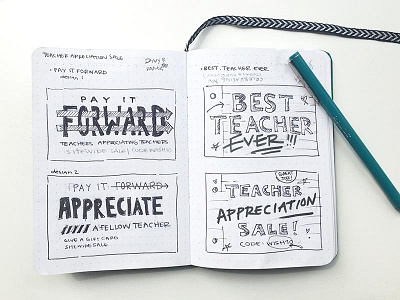 TEACHER APPRECIATION SALE
• PAY IT FORWARD
design 1
PAY IT
FORWARD
TEACHERS APPRECIATING TEACHERS
SITEWIDE SALE! CODE: WISH19
design 2
PAY IT FORWARD
APPRECIATE
A FELLOW TEACHER
GIVE A GIFT CARD
SITEWIDE SALE
• BEST. TEACHER. EVER
BEST
TEACHER
EVER!!!
GREAT
JOB!
TEACHER
APPRECIATION
SALE!
CODE: